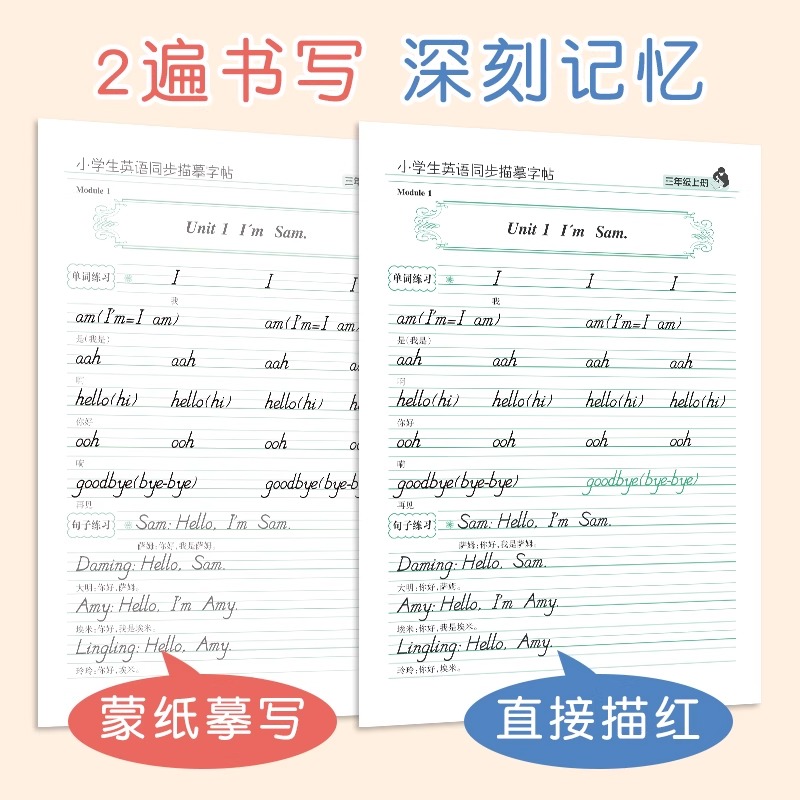 2遍书写 深刻记忆
小学生英语同步描摹字帖
三年
Module 1
Unit 1 I'm Sam.
单词练习 I I I
我
am(I'm=I am) am(I'm=I am)
是(我是)
aah aah aah
啊
hello(hi) hello(hi) hello(hi)
你好
ooh ooh ooh
嗬
goodbye(bye-bye) goodbye(bye-bye)
再见
句子练习 Sam: Hello, I'm Sam.
萨姆:你好,我是萨姆。
Daming: Hello, Sam.
大明:你好,萨姆。
Amy: Hello, I'm Amy.
埃米:你好,我是埃米。
Lingling: Hello, Amy.
玲玲:你好,埃米。
蒙纸摹写
小学生英语同步描摹字帖
三年级上册
Module 1
Unit 1 I'm Sam.
单词练习 I I I
我
am(I'm=I am) am(I'm=I am)
是(我是)
aah aah aah aah
啊
hello(hi) hello(hi) hello(hi) hello(hi)
你好
ooh ooh ooh ooh
嗬
goodbye(bye-bye) goodbye(bye-bye)
再见
句子练习 Sam: Hello, I'm Sam.
萨姆:你好,我是萨姆。
Daming: Hello, Sam.
大明:你好,萨姆。
Amy: Hello, I'm Amy.
埃米:你好,我是埃米。
Lingling: Hello, Amy.
玲玲:你好,埃米。
直接描红